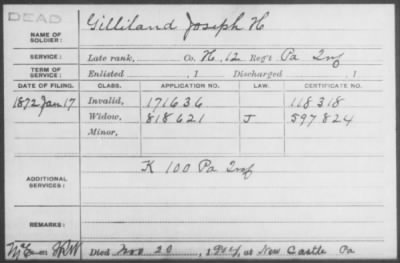 DEAD
NAME OF SOLDIER: Gilliland Joseph H
SERVICE: Late rank, Co. H, 12 Reg't Pa Inf
TERM OF SERVICE: Enlisted , 1 Discharged , 1
DATE OF FILING. CLASS. APPLICATION NO. LAW. CERTIFICATE NO.
1872 Jan 17 Invalid, 171636 118318
Widow, 818621 J 597824
Minor,
ADDITIONAL SERVICES: K 100 Pa Inf
REMARKS:
Died Nov 20, 1904, at New Castle Pa